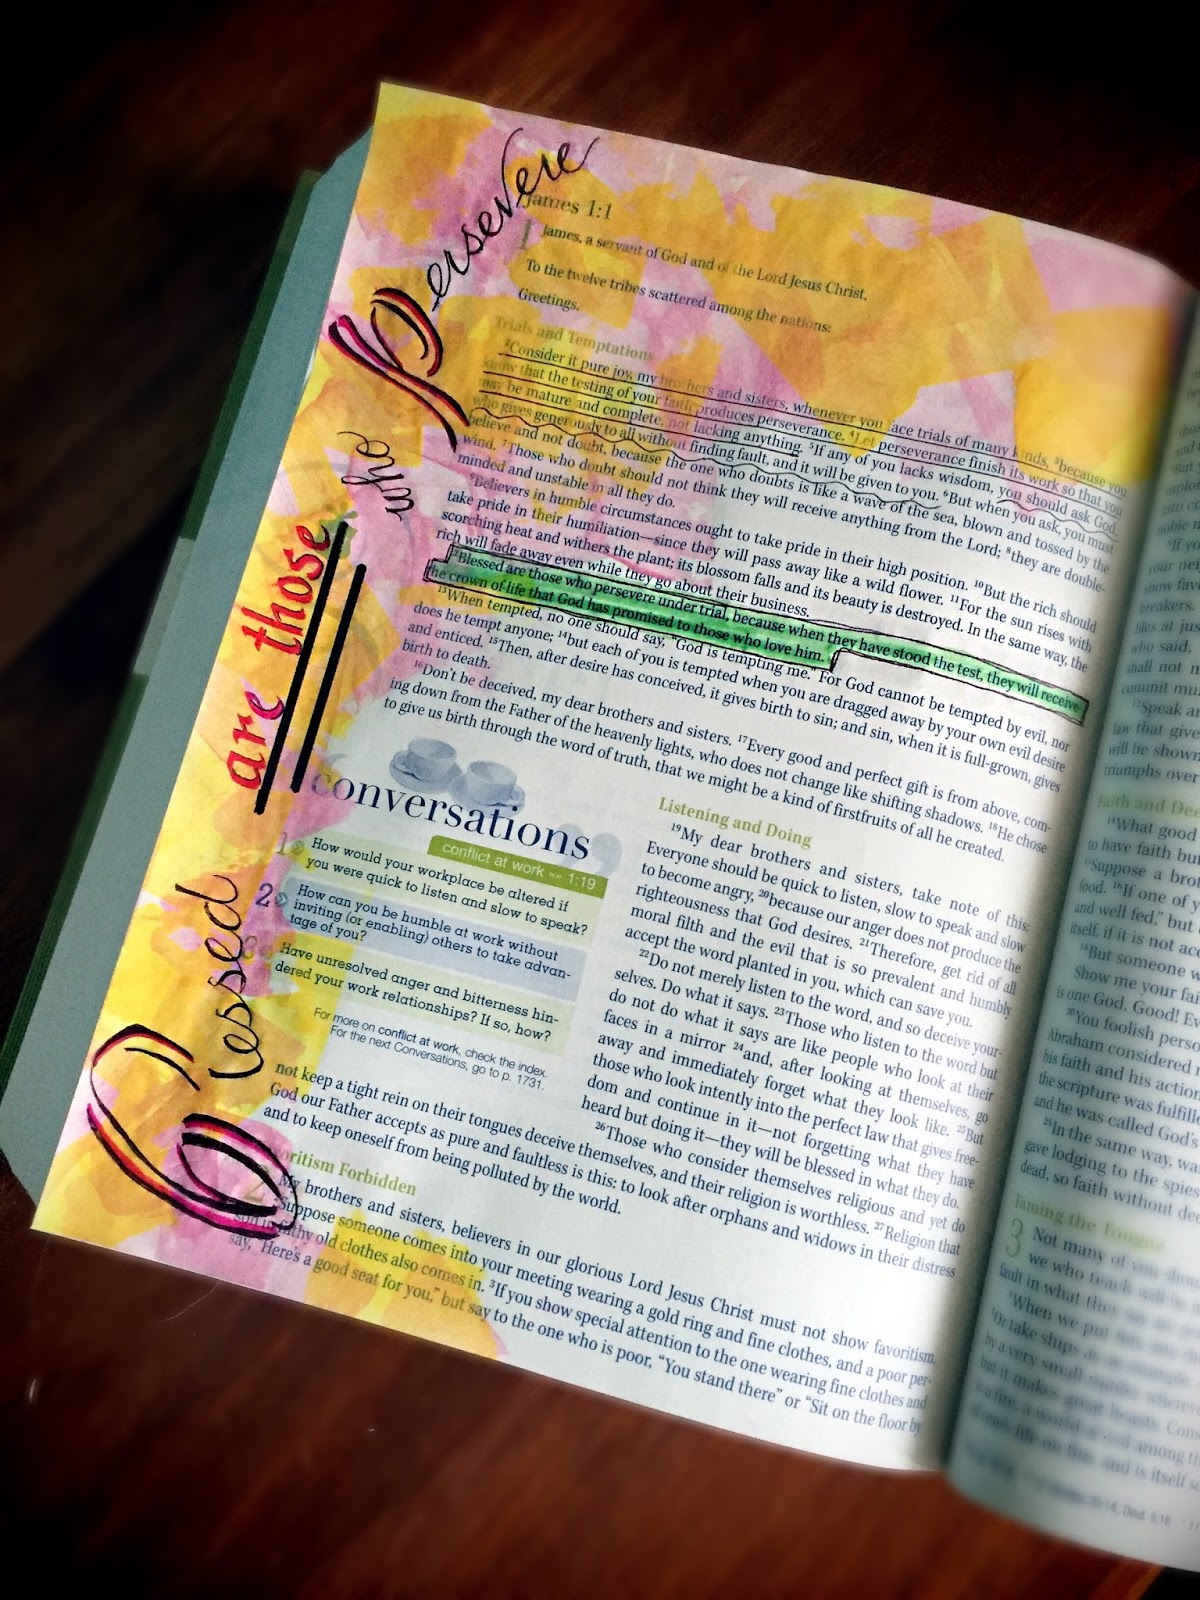 Blessed are those who Persevere
James 1:1
1 James, a servant of God and of the Lord Jesus Christ,
To the twelve tribes scattered among the nations:
Greetings.
Trials and Temptations
2Consider it pure joy, my brothers and sisters, whenever you face trials of many kinds, 3because you
know that the testing of your faith produces perseverance. 4Let perseverance finish its work so that you
may be mature and complete, not lacking anything. 5If any of you lacks wisdom, you should ask God,
who gives generously to all without finding fault, and it will be given to you. 6But when you ask, you must
believe and not doubt, because the one who doubts is like a wave of the sea, blown and tossed by the
wind. 7Those who doubt should not think they will receive anything from the Lord; 8they are double-
minded and unstable in all they do.
9Believers in humble circumstances ought to take pride in their high position. 10But the rich should
take pride in their humiliation—since they will pass away like a wild flower. 11For the sun rises with
scorching heat and withers the plant; its blossom falls and its beauty is destroyed. In the same way, the
rich will fade away even while they go about their business.
12Blessed are those who persevere under trial, because when they have stood the test, they will receive
the crown of life that God has promised to those who love him.
13When tempted, no one should say, "God is tempting me." For God cannot be tempted by evil, nor
does he tempt anyone; 14but each of you is tempted when you are dragged away by your own evil desire
and enticed. 15Then, after desire has conceived, it gives birth to sin; and sin, when it is full-grown, gives
birth to death.
16Don't be deceived, my dear brothers and sisters. 17Every good and perfect gift is from above, com-
ing down from the Father of the heavenly lights, who does not change like shifting shadows. 18He chose
to give us birth through the word of truth, that we might be a kind of firstfruits of all he created.
conversations
conflict at work «» 1:19
1 How would your workplace be altered if
you were quick to listen and slow to speak?
2 How can you be humble at work without
inviting (or enabling) others to take advan-
tage of you?
3 Have unresolved anger and bitterness hin-
dered your work relationships? If so, how?
For more on conflict at work, check the index.
For the next Conversations, go to p. 1731.
Listening and Doing
19My dear brothers and sisters, take note of this:
Everyone should be quick to listen, slow to speak and slow
to become angry, 20because our anger does not produce the
righteousness that God desires. 21Therefore, get rid of all
moral filth and the evil that is so prevalent and humbly
accept the word planted in you, which can save you.
22Do not merely listen to the word, and so deceive your-
selves. Do what it says. 23Those who listen to the word but
do not do what it says are like people who look at their
faces in a mirror 24and, after looking at themselves, go
away and immediately forget what they look like. 25But
those who look intently into the perfect law that gives free-
dom and continue in it—not forgetting what they have
heard but doing it—they will be blessed in what they do.
26Those who consider themselves religious and yet do
not keep a tight rein on their tongues deceive themselves, and their religion is worthless. 27Religion that
God our Father accepts as pure and faultless is this: to look after orphans and widows in their distress
and to keep oneself from being polluted by the world.
Favoritism Forbidden
2 My brothers and sisters, believers in our glorious Lord Jesus Christ must not show favoritism.
Suppose someone comes into your meeting wearing a gold ring and fine clothes, and a poor per-
son in filthy old clothes also comes in. 3If you show special attention to the one wearing fine clothes and
say, "Here's a good seat for you," but say to the one who is poor, "You stand there" or "Sit on the floor by
who said,
shall not m
commit mu
12Speak an
law that give
will be shown
triumphs over
Faith and Dee
14What good
to have faith but
15Suppose a brot
food. 16If one of y
and well fed," but
itself, if it is not ac
18But someone w
Show me your fai
is one God. Good! Ev
20You foolish perso
Abraham considered r
his faith and his action
the scripture was fulfill
and he was called God's
25In the same way, wa
gave lodging to the spies
dead, so faith without dee
Taming the Tongue
3 Not many of you shou
we who teach will be
fault in what they say are
3When we put bits into the
Or take ships as an example.
by a very small rudder wherever
but it makes great boasts. Cons
a fire, a world of evil among th
of one's life on fire, and is itself s